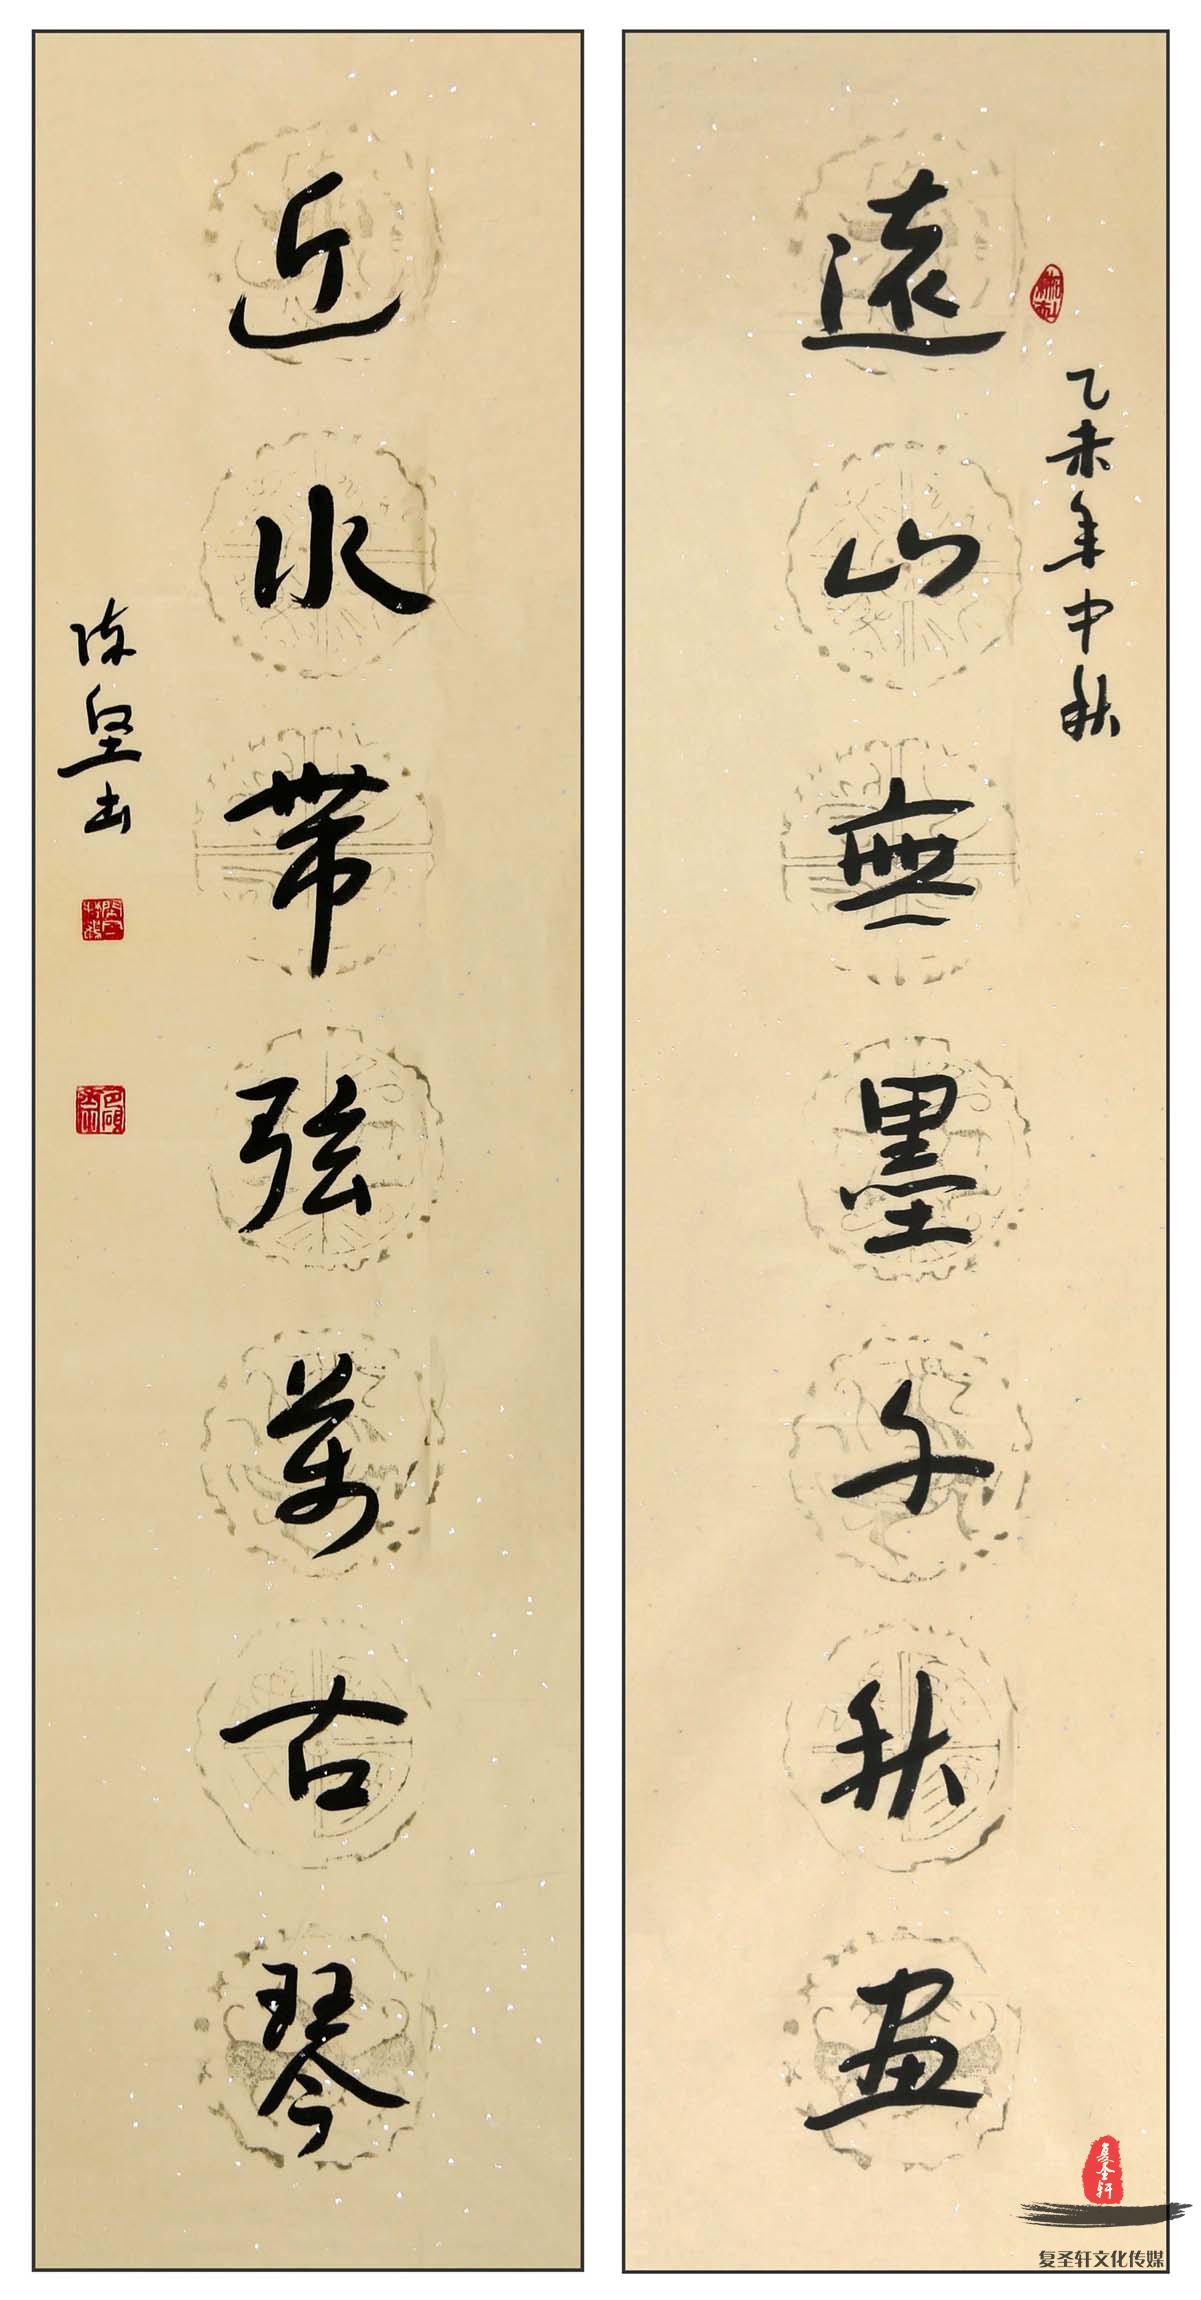 乙未年中秋
遠山無墨千秋画
近水带弦萬古琴
陈坚书
复圣轩
复圣轩文化传媒